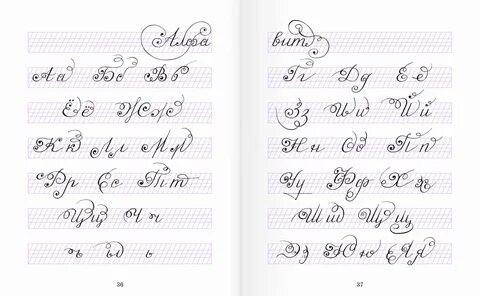 Алфа
Аа Бб Вв
Ёё Жж
Кк Лл Мм
Рр Сс Тт
Цц Чч
ъ ы ь
36
вит
Гг Дд Ее
Зз Ии Йй
Нн Оо Пп
Уу Фф Хх
Шш Щщ
Ээ Юю Яя
37